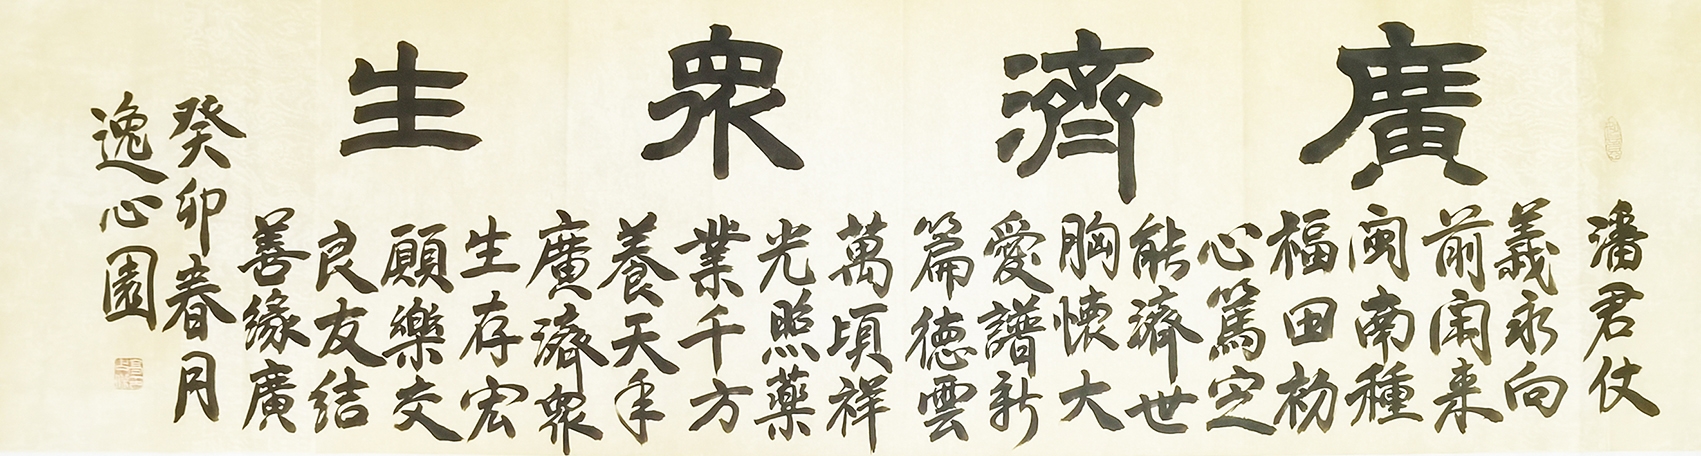 廣濟眾生
潘君仗
義永向
前来
闽南種
福田初
心篤定
能濟世
胸懷大
愛譜新
篇德雲
萬頃祥
光照藥
業千方
養天年
廣濟眾
生存宏
願樂交
良友結
善緣廣
癸卯春月
逸心園